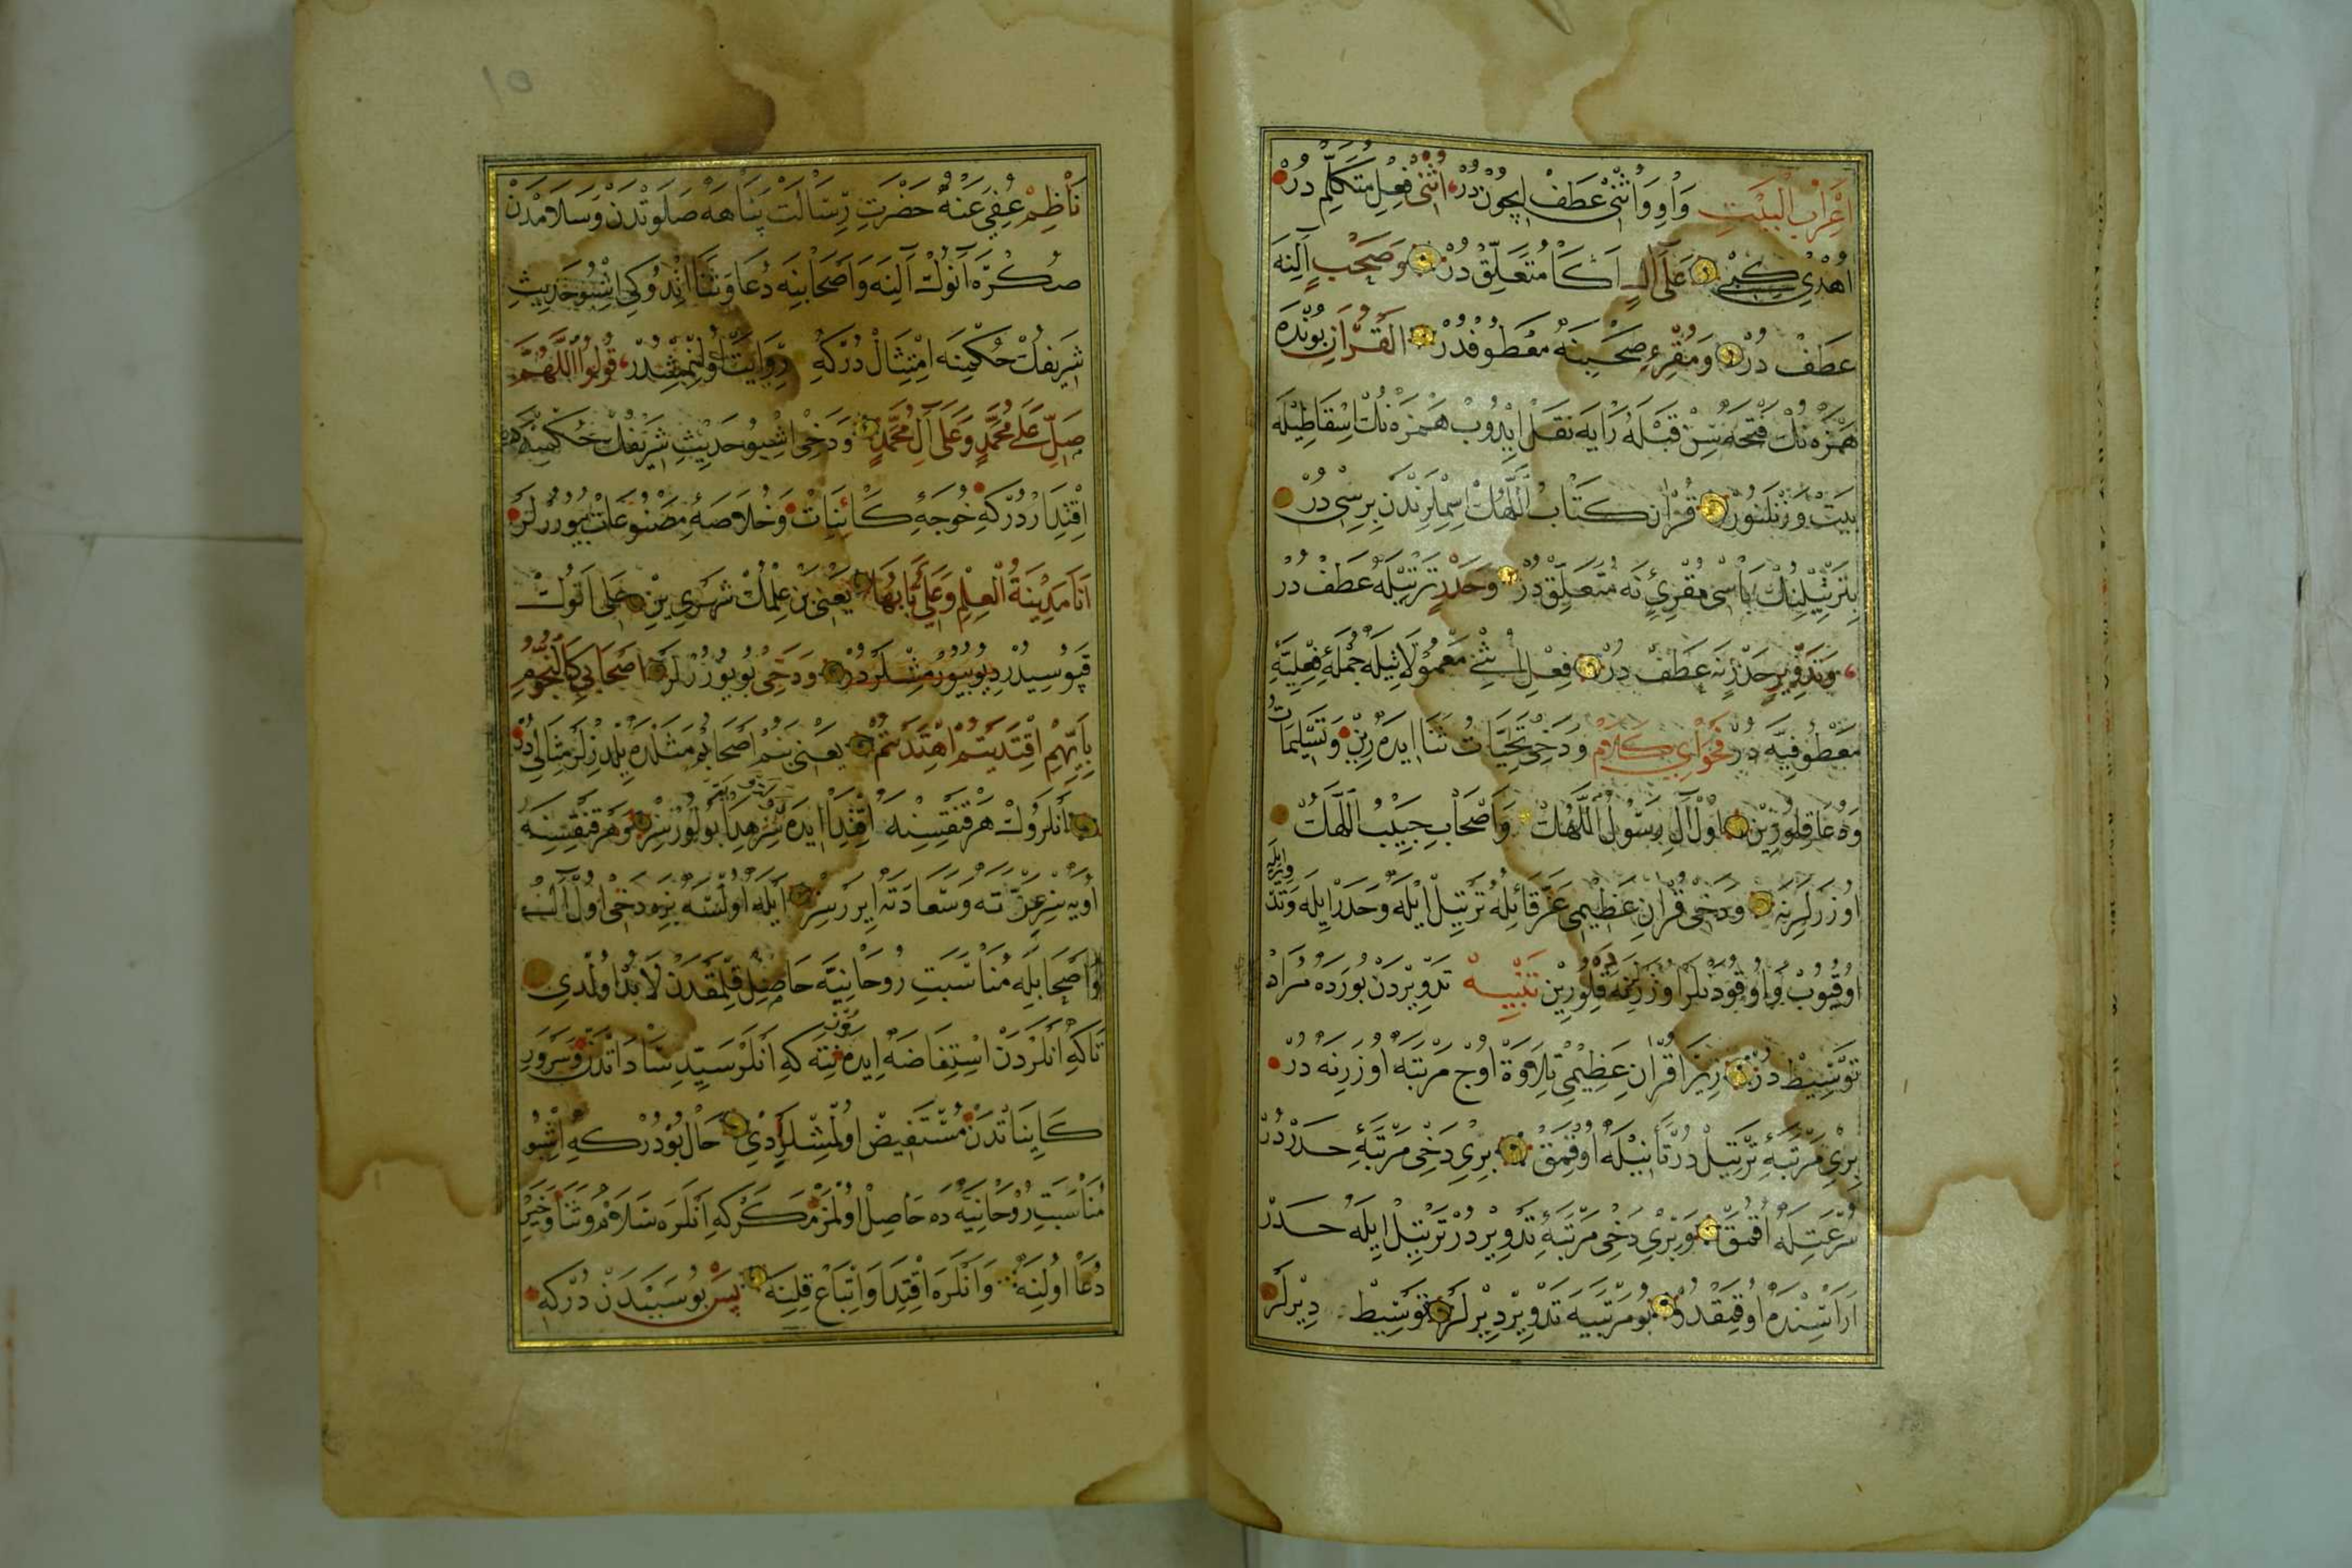 اِعْرَابُ الْبَيْتِ وَاوِ وَاُثْنِى عَطْفْ اِچُونْ دُرْ اُثْنِى فِعْلِ مُتَكَلِّمْ دُرْ
اُهْدِى كِبِى عَلَى اٰلٍ اَكَا مُتَعَلِّقْ دُرْ وَصَحْبٍ اٰلِنَه
عَطَفْ دُرْ وَمُقْرِءِ صَحْبِنَه مَعْطُوفْدُرْ الْقُرَانِ بُونْدَه
هَمْزَه نُكْ فَتْحَه سِنْ قَبْلَه رَايَه نَقَلْ اِيْدُوبْ هَمْزَه نُكْ اِسْقَاطِيلَه
بَيْتْ وَزِنْلَنُورْ قُرْاٰن كِتَابُ اللّٰهكْ اِسِمْلَرِنْدَن بِرِسِى دُرْ
بِتَرْتِيْلِنُكْ بَاسِى مُقْرِئِ نَه مُتَعَلِّقْ دُرْ وَحَدْرٍ تَرْتِيْلَه عَطَفْ دُرْ
وَتَدْوِيْرٍ حَدْرِنَه عَطَفْ دُرْ فِعْلِ اُثْنِى مَعْمُولَاتِيلَه جُمْلَهِ فِعْلِيَّهِ
مَعْطُوفِيَّه دُرْ فَحْوَاىِ كَلَامْ وَدَخِى تَحِيَّات ثَنَا اِيدَه رِيْن وَتَسْلِيمَات
وَدُعَا قِلُورِيْن اُول اٰلِ رَسُولُ اللّٰهكْ وَاَصْحَابِ حَبِيْبُ اللّٰهكْ
اُوزَرْلَرِنَه وَدَخِى قُرْاٰنِ عَظِيْمِى عَزَّ قَائِلُهُ تَرْتِيْلْ اِيلَه وَحَدَرْ اِيلَه وَتَدْوِيرِيلَه
اُوقُيُوبْ وَاُوقُودَنْلَرْ اُوزَرِنَه قِلُورِيْن تَنْبِيْه تَدْوِيرْدَنْ بُورَدَه مُرَادْ
تَوَسُّطْ دُرْ زِيْرَا قُرْاٰنِ عَظِيْمِى تِلَاوَة اُوچ مَرْتَبَه اُوزَرِنَه دُرْ
بِرِى مَرْتَبَهِ تَرْتِيْلْ دُرْ تَأَنِّيلَه اُوقُمَقْ بِرِى دَخِى مَرْتَبَهِ حَدَرْ دُرْ
سُرْعَتِلَه اُوقُمَقْ وَبِرِى دَخِى مَرْتَبَهِ تَدْوِيْر دُرْ تَرْتِيْلْ اِيلَه حَدَرْ
اَرَاسِنْدَه اُوقُمَقْدُرْ بُو مَرْتَبَيَه تَدْوِيْر دِيْرلَرْ تَوَسُّطْ دِيْرلَرْ
نَاظِمْ عُفِىَ عَنْهُ حَضْرَتِ رِسَالَتْ پَنَاهَه صَلَوتْدَنْ وَسَلَامْدَنْ
صُكْرَه اَنُوكْ اٰلِنَه وَاَصْحَابِنَه دُعَا وَثَنَا اِتْدُوكِى اِشْبُو حَدِيثِ
شَرِيفُكْ حُكْمِنَه اِمْتِثَالْ دُرْكِه رِوَايَتْ اُولِنْمِشْدُرْ قُولُوا اَللّٰهُمَّ
صَلِّ عَلٰى مُحَمَّدٍ وَعَلٰى اٰلِ مُحَمَّدٍ وَدَخِى اِشْبُو حَدِيْثِ شَرِيْفُكْ حُكْمِنَه
اِقْتِدَارْ دُرْكِه خُوجَهِ كَائِنَاتْ وَخُلَاصَهِ مَصْنُوعَاتْ بُيُورُرلَرْ
اَنَا مَدِيْنَةُ الْعِلْمِ وَعَلِىٌّ بَابُهَا يَعْنِى بَنْ عِلْمُكْ شَهْرِى يِنْ عَلِى اَنُوكْ
قَپُوسِيدُرْ دِيُو بُيُورْمِشْلَرْدُرْ وَدَخِى بُويُورُرلَرْ اَصْحَابِى كَالنُّجُومِ
بِاَيِّهِمْ اِقْتَدَيْتُمْ اِهْتَدَيْتُمْ يَعْنِى بَنُمْ اَصْحَابُمْ مَثَلْدَه يِلْدِزْلَرْ مِثَالِى دُرْ
اَنْلَرُوكْ هَرْقَنْقِسِنَه اِقْتِدَا اِيدَه سِزْ هِدَا بُولُورسِزْ وَهَرْقَنْقِسِنَه
اُويَه سِز عِزَّتَه وَسَعَادَتَه اِيرَرْسِزْ اَيْلَه اُولسَه بِزَه دَخِى اُولْ اٰلْ
وَاَصْحَابِلَه مُنَاسَبَتِ رُوحَانِيَّه حَاصِلْ قِلْمَقْدَنْ لَابُدْ اُولْدِى
تَاكِه اَنْلَرْدَنْ اِسْتِفَاضَه اِيدَه كِه اَنْلَرْ سَيِّدِ سَادَاتْدَنْ وَسَرْوَرِ
كَايِنَاتْدَنْ مُسْتَفِيضْ اُولْمِشْلَرْدِى حَالْ بُودُرْكِه اِشْبُو
مُنَاسَبَتِ رُوْحَانِيَّه دَه حَاصِلْ اُولْمَزْ مَكَرْكِه اَنْلَرَه سَلَامْ وَثَنَا وَخَيْرْ
دُعَا اُولِنَه وَاَنْلَرَه اِقْتِدَا وَاِتْبَاعْ قِلِنَه پَسْ بُو سَبَبْدَنْ دُرْكِه